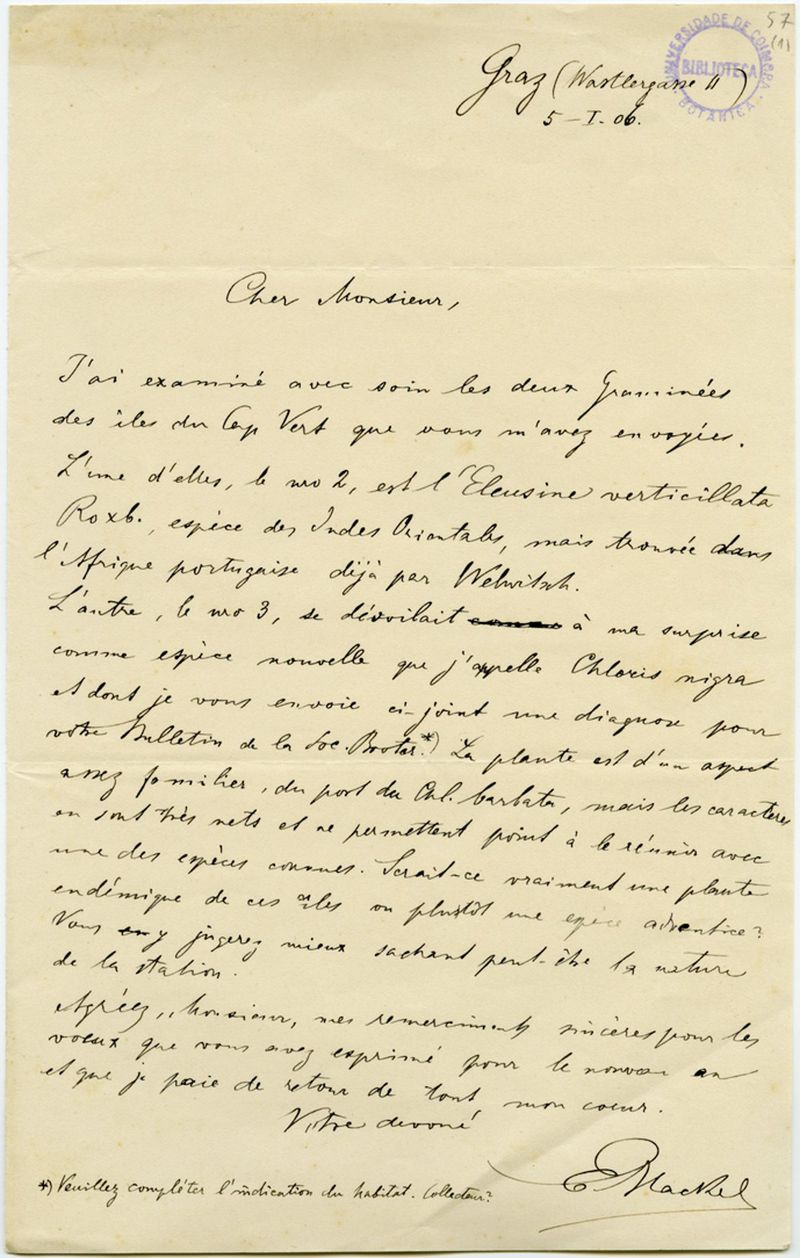 57
(1)
UNIVERSIDADE DE COIMBRA
BIBLIOTECA
BOTANICA
Graz (Wastlergasse 11)
5-I-06.
Cher Monsieur,
J'ai examiné avec soin les deux Graminées
des îles du Cap Vert que vous m'avez envoyées.
L'une d'elles, le nro 2, est l'Eleusine verticillata
Roxb., espèce des Indes Orientales, mais trouvée dans
l'Afrique portugaise déjà par Welwitsch.
L'autre, le nro 3, se dévoilait à ma surprise
comme espèce nouvelle que j'appelle Chloris nigra
et dont je vous envoie ci-joint une diagnose pour
votre Bulletin de la Soc. Broter.*) La plante est d'un aspect
assez familier, du port du Chl. barbata, mais les caractères
en sont très nets et ne permettent point à le réunir avec
une des espèces connues. Serait-ce vraiment une plante
endémique de ces îles ou plutôt une espèce adventice?
Vous y jugerez mieux sachant peut-être la nature
de la station.
Agréez, Monsieur, mes remerciments sincères pour les
voeux que vous avez exprimé pour le nouveau an
et que je paie de retour de tout mon coeur.
Votre devoué
E Hackel
*) Veuillez compléter l'indication du habitat. Collecteur?